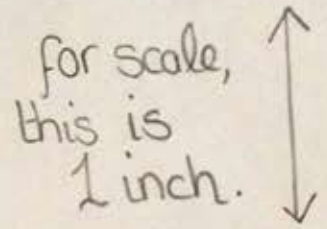 for scale,
this is
1 inch.